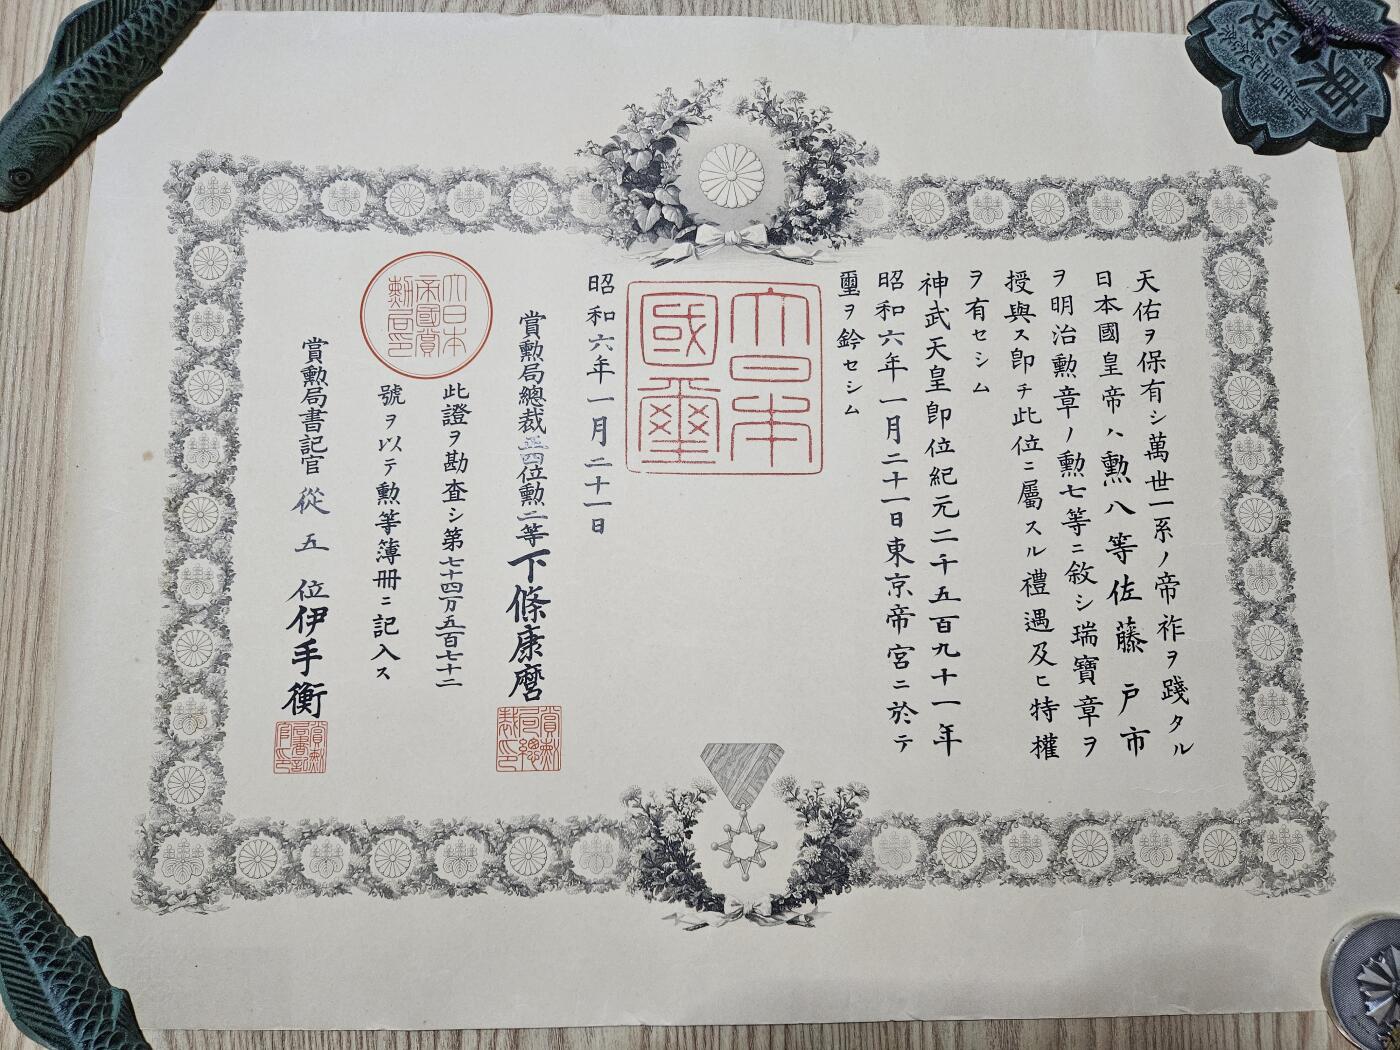 天佑ヲ保有シ萬世一系ノ帝祚ヲ踐タル
日本國皇帝ハ勲八等佐藤戸市
ヲ明治勲章ノ勲七等ニ敘シ瑞寶章ヲ
授與ス卽チ此位ニ屬スル禮遇及ヒ特權
ヲ有セシム
神武天皇卽位紀元二千五百九十一年
昭和六年一月二十一日東京帝宮ニ於テ
璽ヲ鈐セシム
大日本
國璽
昭和六年一月二十一日
賞勲局總裁正四位勲二等下條康麿
賞勲局總裁之印
此證ヲ勘査シ第七十四万五百七十二
號ヲ以テ勲等簿冊ニ記入ス
大日本
帝國賞
勲局印
賞勲局書記官從五位伊手衡